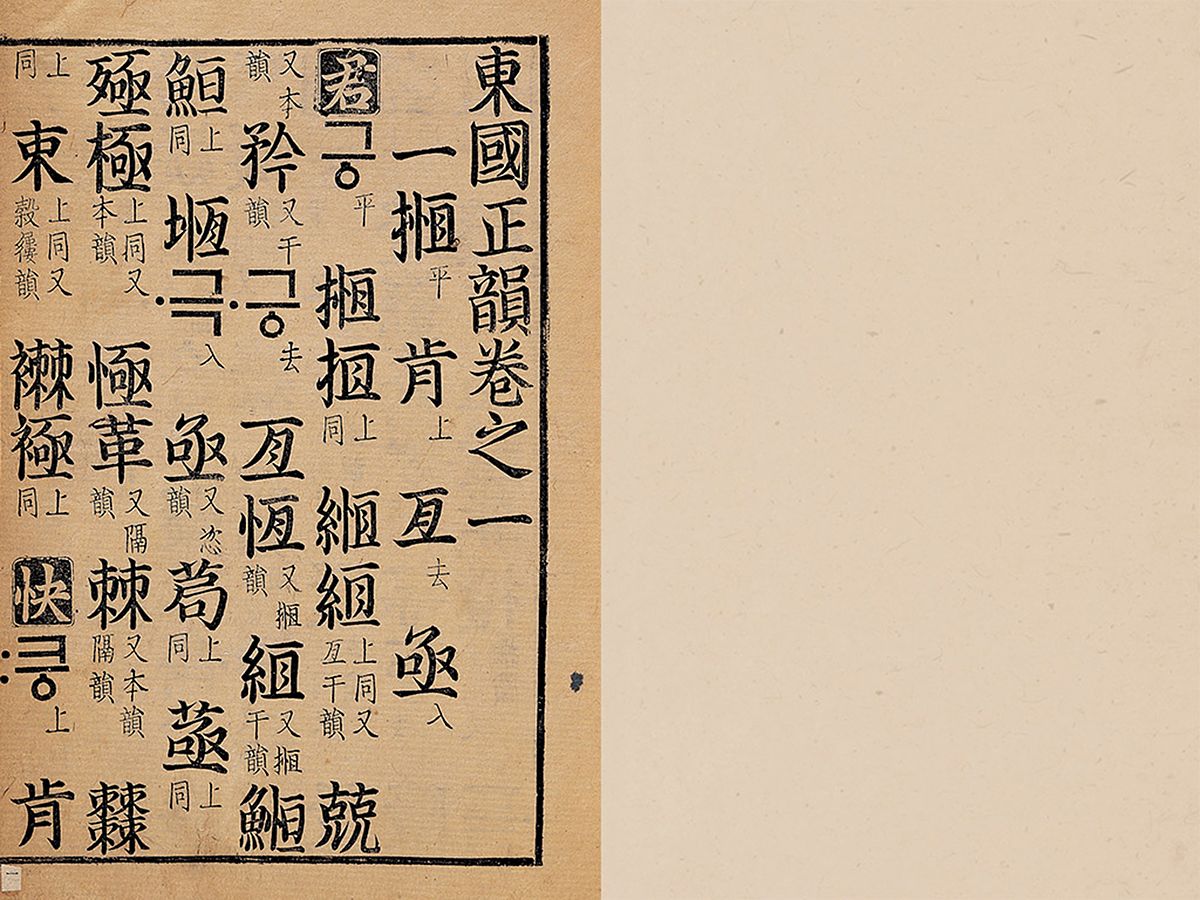 東國正韻卷之一
一搄平肯上亙去亟入
君긍平搄揯上同縆絚上同又亙干韻兢
又本韻矜又干韻·긍去亙恆又搄韻絚又搄干韻䱭
上同堩·극入亟又恣韻茍上同上同
殛極上同又本韻㥛革又隔韻棘又本韻隔韻
上同朿上同又韻襋上同快:킁上肯